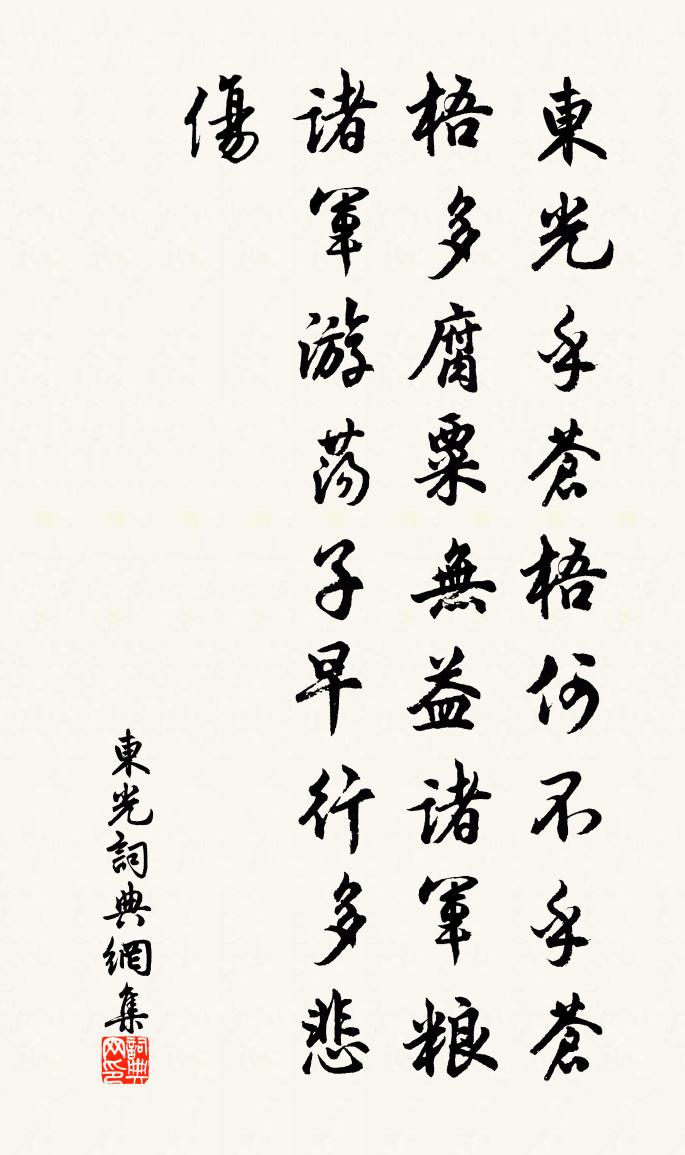 東光乎蒼梧何不乎蒼
梧多腐粟無益諸軍粮
諸軍游蕩子早行多悲
傷
東光詞典網集
詞典网印